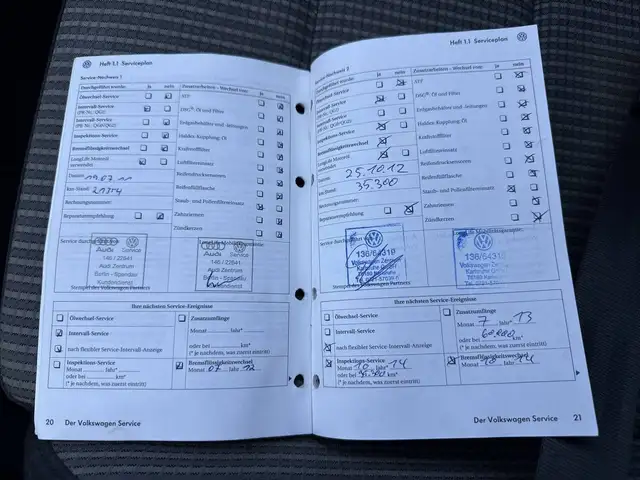 Heft 1.1 Serviceplan
Service-Nachweis 1
Durchgeführt wurde: ja nein
Zusatzarbeiten - Wechsel von: ja nein
Ölwechsel-Service
Intervall-Service
(PR-Nr.: QG0)
Intervall-Service
Inspektions-Service
Bremsflüssigkeitswechsel
LongLife Motoröl
verwendet
Datum: 19.07.11
km-Stand: 21354
Rechnungsnummer:
Reparaturempfehlung
DSG®: Öl und Filter
Erdgasbehälter und -leitungen
Haldex Kupplung: Öl
Kraftstofffilter
Luftfiltereinsatz
Reifendichtmittel
Reifenfüllflasche
Staub- und Pollenfiltereinsatz
Zahnriemen
Zündkerzen
Service durchgeführt
LongLife Mobilitätsgarantie
Audi Service
146 / 22641
Audi Zentrum
Berlin - Spandau
Kundendienst
Audi Service
146 / 22641
Audi Zentrum
Berlin - Spandau
Stempel des Volkswagen Partners
Ihre nächsten Service-Ereignisse
Ölwechsel-Service
Intervall-Service
nach flexibler Service-Intervall-Anzeige
Inspektions-Service
Monat Jahr*
oder bei km*
(* je nachdem, was zuerst eintritt)
Zusatzumfänge
Monat Jahr*
oder bei km*
(* je nachdem, was zuerst eintritt)
Bremsflüssigkeitswechsel
Monat 07 Jahr 12
20 Der Volkswagen Service
Heft 1.1 Serviceplan
Service-Nachweis 2
Durchgeführt wurde: ja nein
Zusatzarbeiten - Wechsel von: ja nein
Ölwechsel-Service
Intervall-Service
Intervall-Service
Inspektions-Service
Bremsflüssigkeitswechsel
LongLife Motoröl
verwendet
Datum: 25.10.12
km-Stand: 35.300
Rechnungsnummer:
Reparaturempfehlung
DSG®: Öl und Filter
Erdgasbehälter und -leitungen
Haldex Kupplung: Öl
Kraftstofffilter
Luftfiltereinsatz
Reifendichtmittel
Reifenfüllflasche
Staub- und Pollenfiltereinsatz
Zahnriemen
Zündkerzen
Service durchgeführt
136/64319
Volkswagen Zentrum
Karlsruhe GmbH
136/64319
Volkswagen Zentrum
Karlsruhe GmbH
Stempel des Volkswagen Partners
Ihre nächsten Service-Ereignisse
Ölwechsel-Service
Intervall-Service
nach flexibler Service-Intervall-Anzeige
Inspektions-Service
Monat 10 Jahr 14
oder bei km*
(* je nachdem, was zuerst eintritt)
Zusatzumfänge
Monat 7 Jahr* 13
oder bei 60.000 km*
(* je nachdem, was zuerst eintritt)
Bremsflüssigkeitswechsel
Monat 10 Jahr 14
Der Volkswagen Service 21